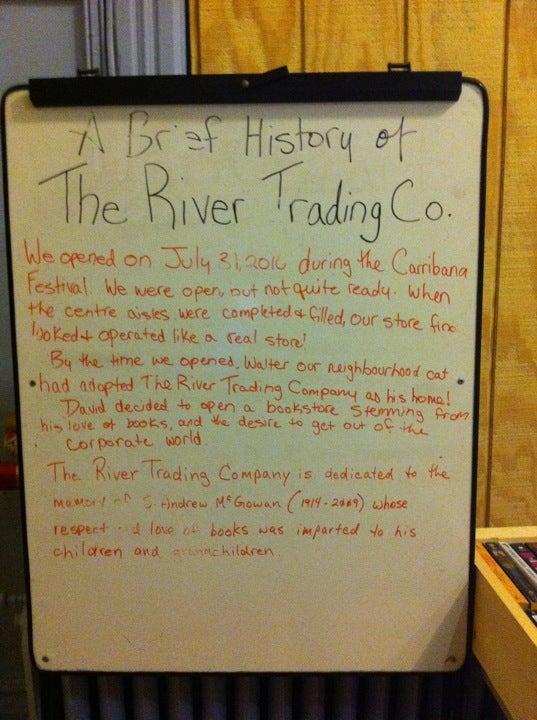 A Brief History of
The River Trading Co.
We opened on July 31, during the Carribana
Festival. We were open, but not quite ready. When
the centre aisles were completed & filled, our store
looked & operated like a real store!
By the time we opened, Walter our neighbourhood cat
had adopted The River Trading Company as his home!
David decided to open a bookstore stemming from
his love of books, and the desire to get out of the
corporate world.
The River Trading Company is dedicated to the
memory of S. Andrew McGowan (1914-2009) whose
respect and love of books was imparted to his
children and grandchildren.